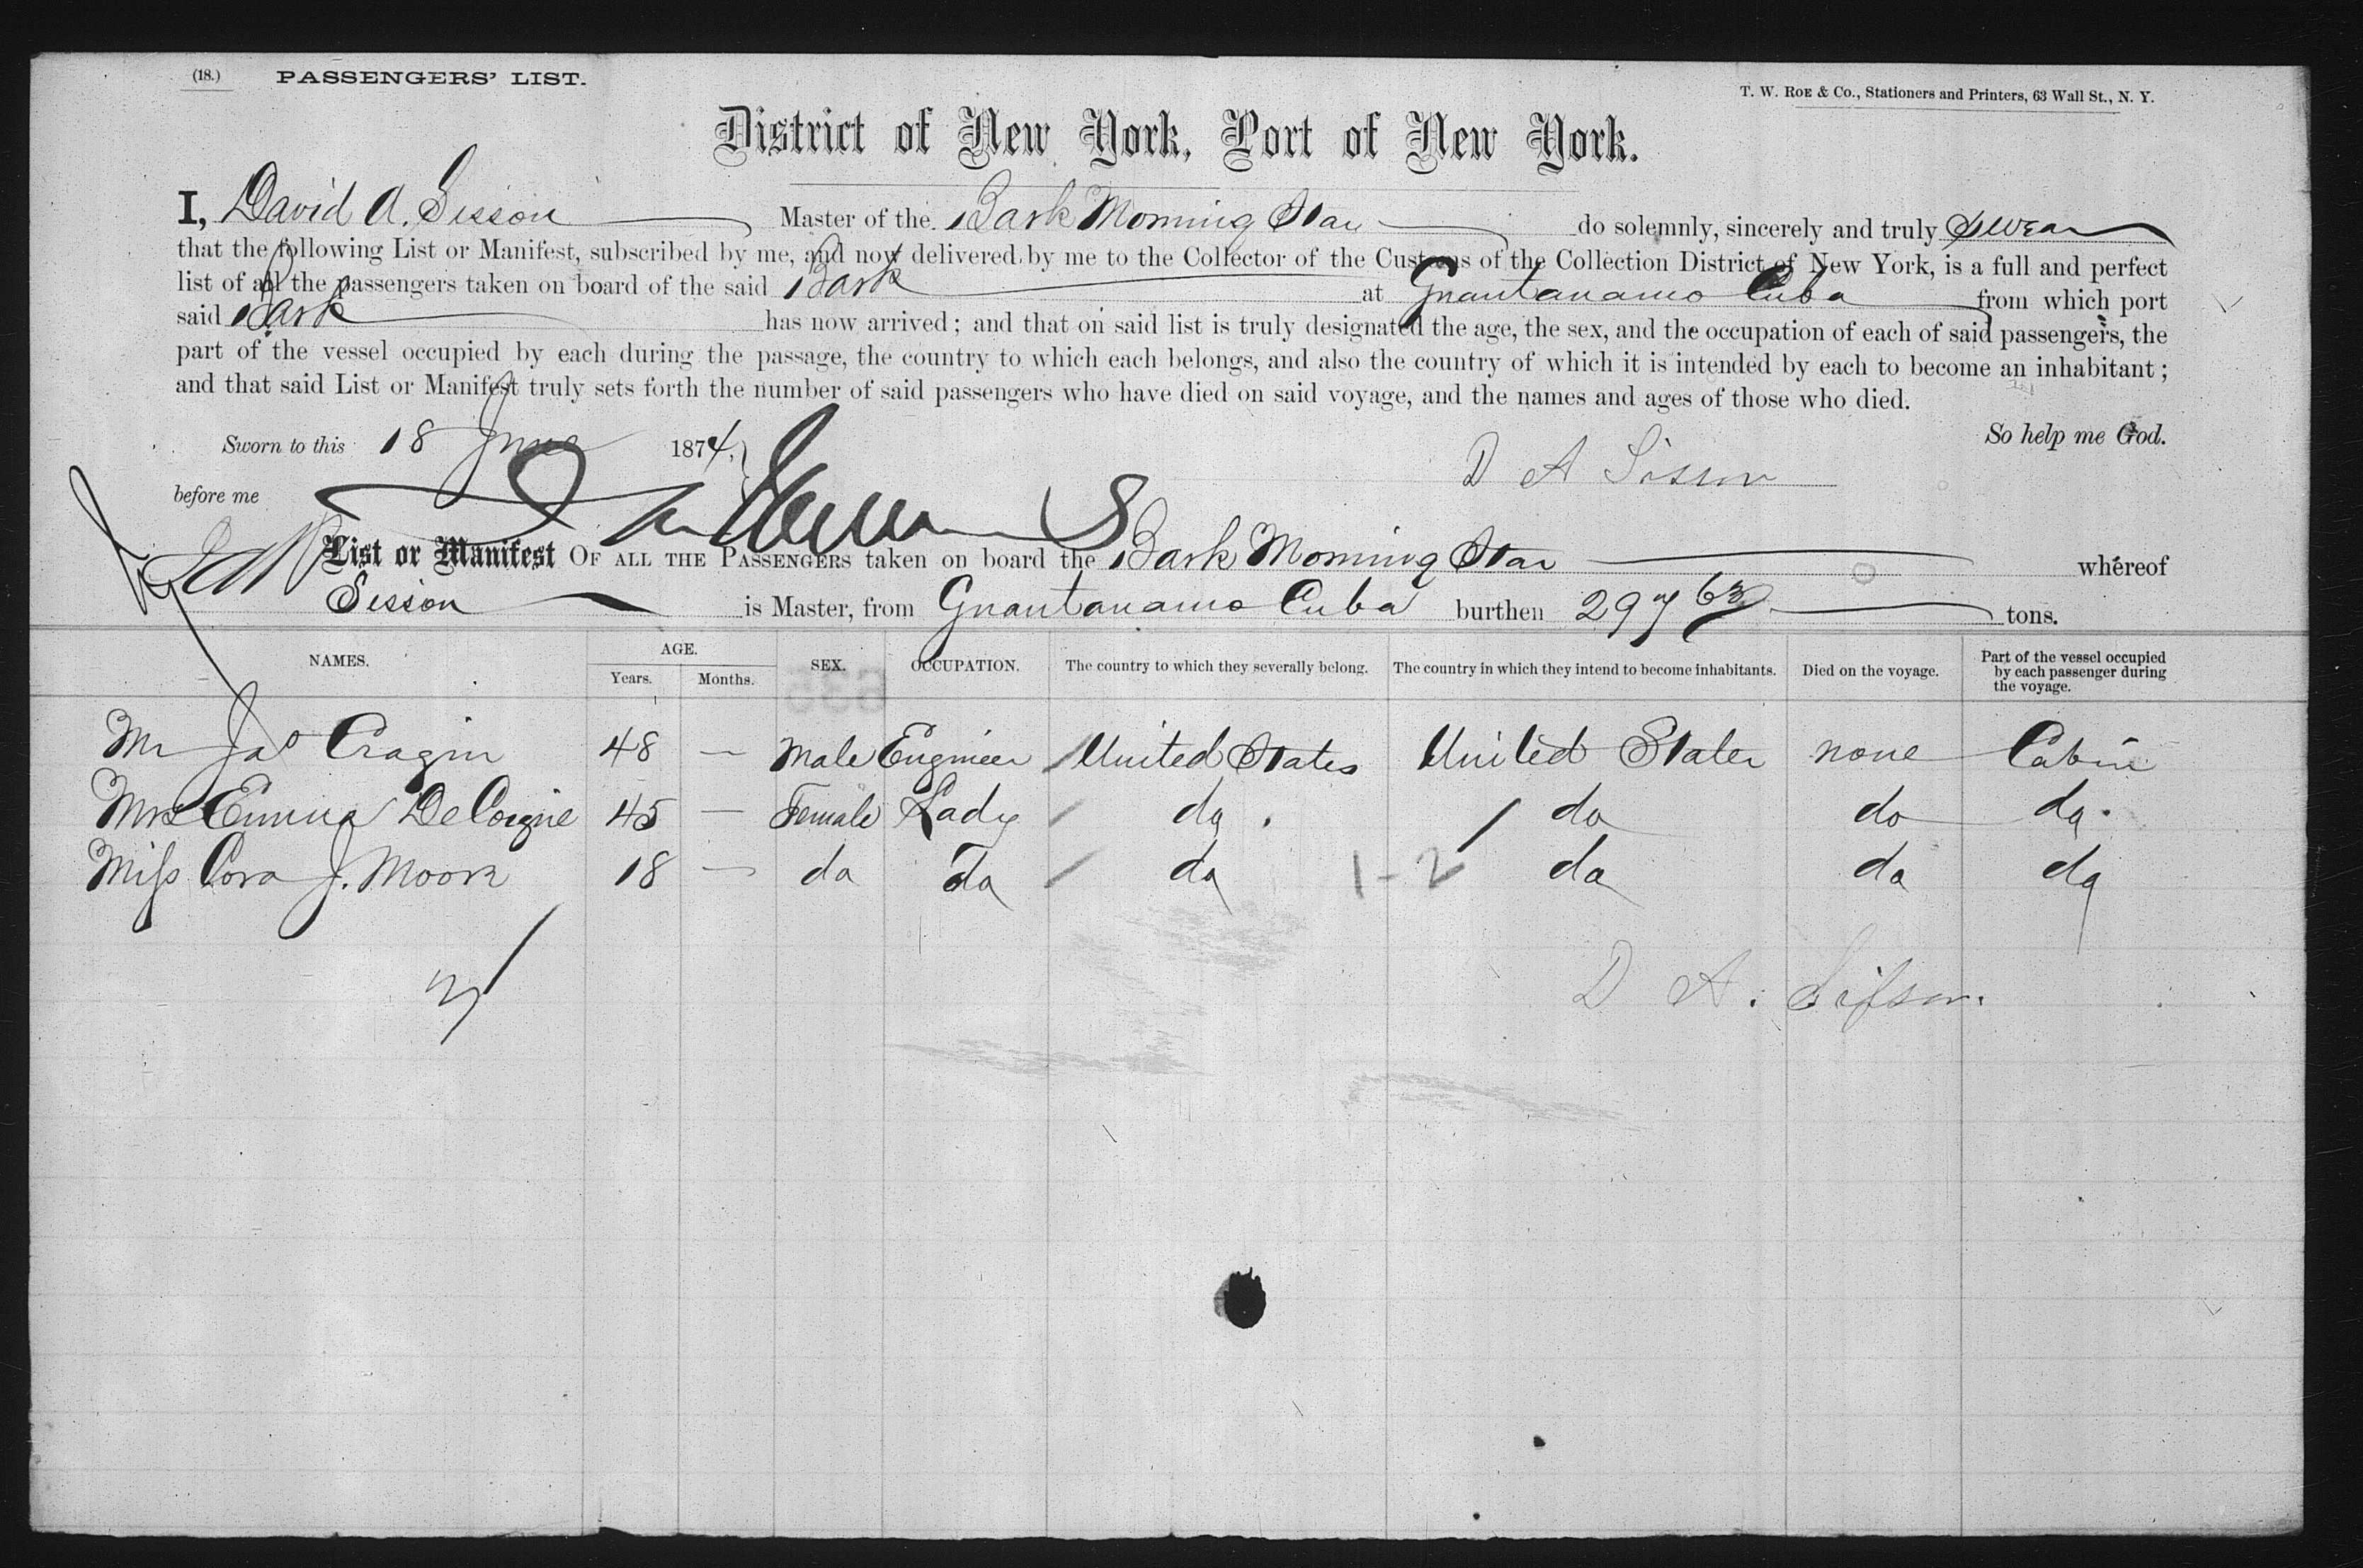 (18.) PASSENGERS' LIST.
T. W. ROE & Co., Stationers and Printers, 63 Wall St., N. Y.
District of New York, Port of New York.
I, David A. Sisson Master of the Bark Morning Star do solemnly, sincerely and truly swear
that the following List or Manifest, subscribed by me, and now delivered by me to the Collector of the Customs of the Collection District of New York, is a full and perfect
list of all the passengers taken on board of the said Bark at Guantanamo Cuba from which port
said Bark has now arrived; and that on said list is truly designated the age, the sex, and the occupation of each of said passengers, the
part of the vessel occupied by each during the passage, the country to which each belongs, and also the country of which it is intended by each to become an inhabitant;
and that said List or Manifest truly sets forth the number of said passengers who have died on said voyage, and the names and ages of those who died.
So help me God.
Sworn to this 18 June 1874,
D A Sisson
before me
List or Manifest OF ALL THE PASSENGERS taken on board the Bark Morning Star whereof
Sisson is Master, from Guantanamo Cuba burthen 297 63 tons.
NAMES. AGE. Years. Months. SEX. OCCUPATION. The country to which they severally belong. The country in which they intend to become inhabitants. Died on the voyage. Part of the vessel occupied by each passenger during the voyage.
635
Mr Jas Cragin 48 — Male Engineer United States United States none Cabin
Mrs Emma DeCoigne 45 — Female Lady do do do do.
Miss Cora J. Moore 18 — do do do 1-2 do do do
3
D A. Sisson.